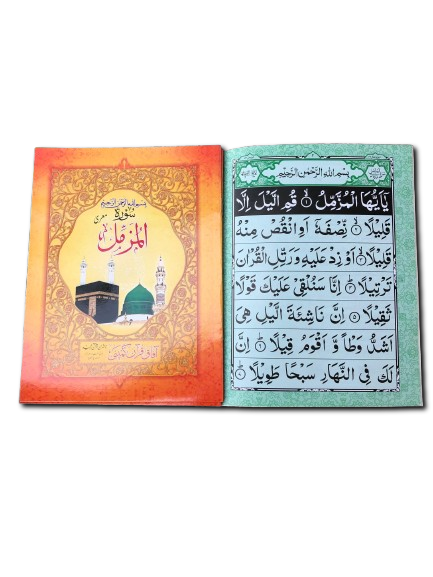 بسم الله الرحمن الرحيم
سورة
معرى
المزمل
بِسْمِ اللهِ الرَّحْمٰنِ الرَّحِيْمِ
يٰۤاَيُّهَا الْمُزَّمِّلُ ۙ۱ قُمِ الَّيْلَ اِلَّا
قَلِيْلًا ۙ۲ نِّصْفَهٗۤ اَوِ انْقُصْ مِنْهُ
قَلِيْلًا ۙ۳ اَوْ زِدْ عَلَيْهِ وَرَتِّلِ الْقُرْاٰنَ
تَرْتِيْلًا ؕ۴ اِنَّا سَنُلْقِيْ عَلَيْكَ قَوْلًا
ثَقِيْلًا ۵ اِنَّ نَاشِئَةَ الَّيْلِ هِيَ
اَشَدُّ وَطْاً وَّ اَقْوَمُ قِيْلًا ؕ۶ اِنَّ
لَكَ فِي النَّهَارِ سَبْحًا طَوِيْلًا ؕ۷